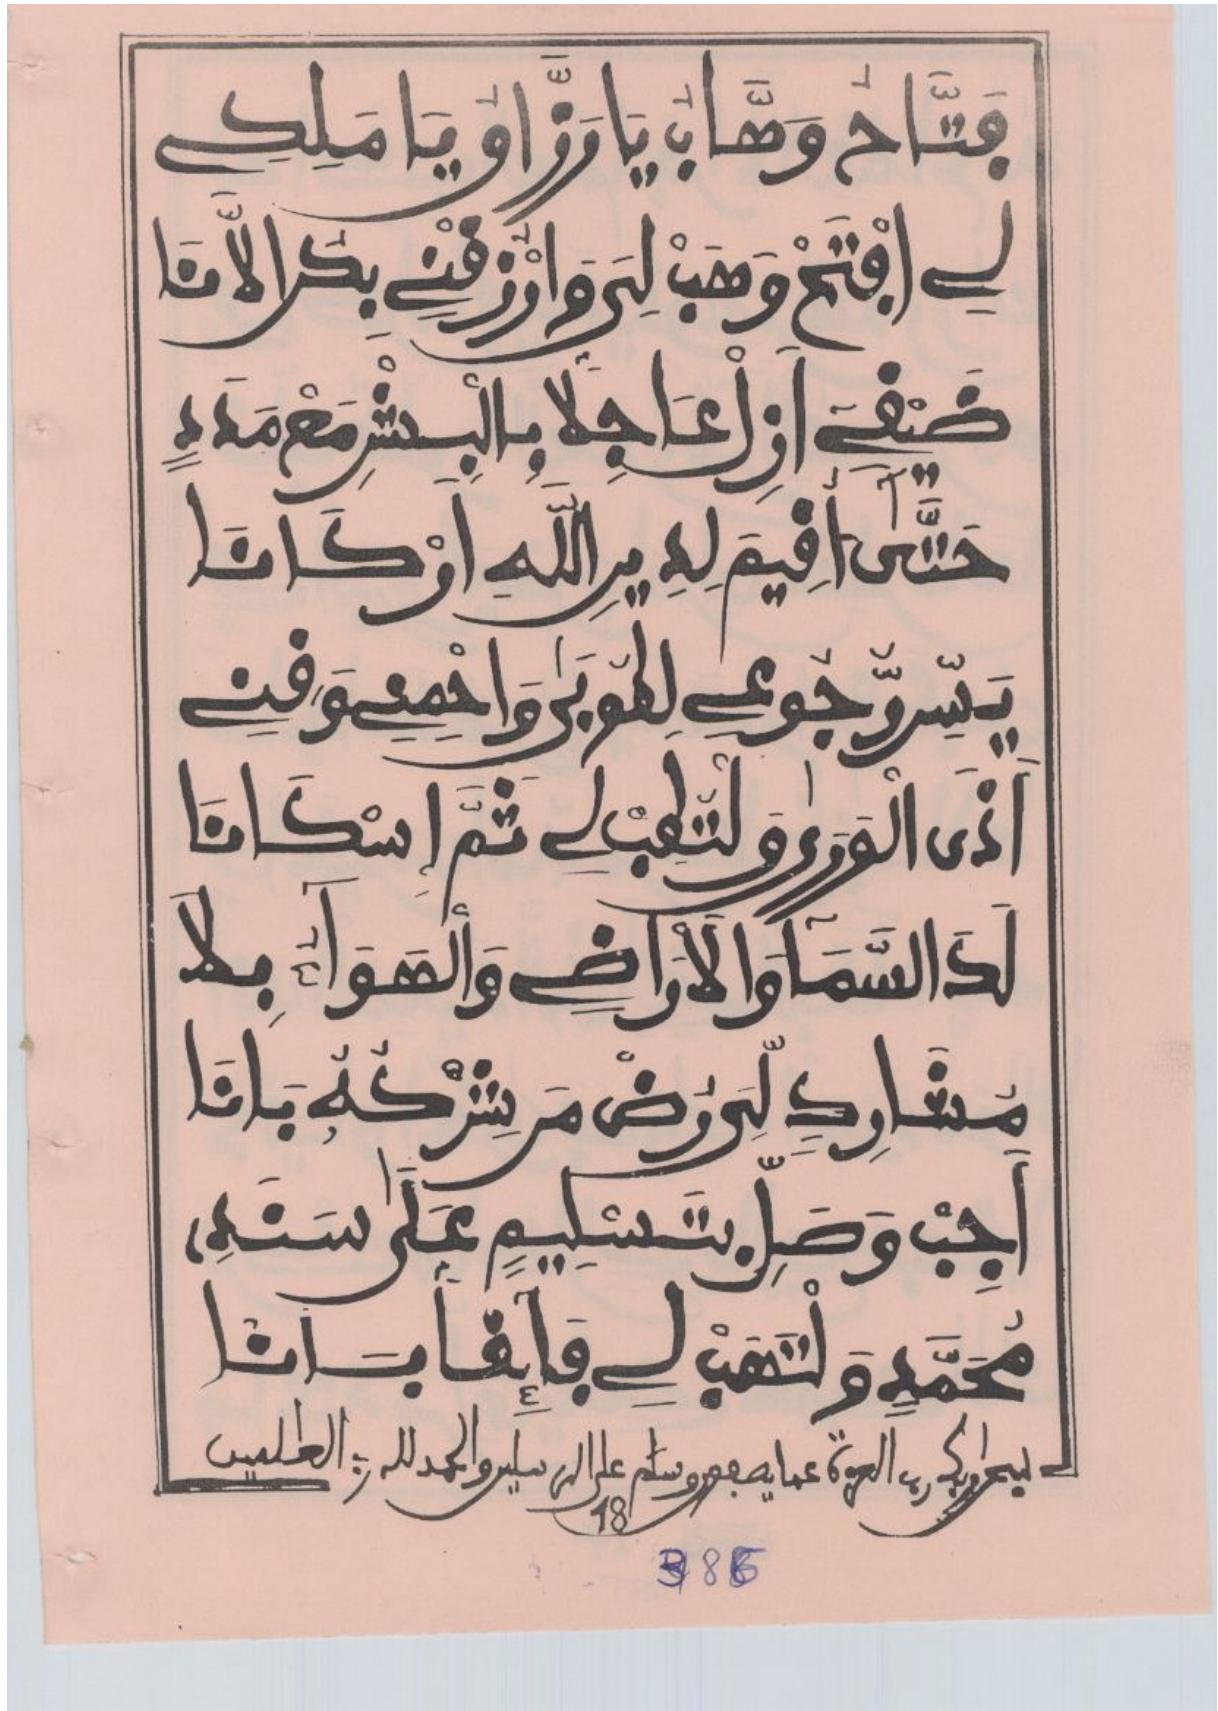 فَتَّاحُ وَهَّابُ يَا رَزَّاقُ يَا مَلِكِ
لِي افْتَحْ وَهَبْ لِيَ وَارْزُقْنِي بِكُنِ الَامَنَا
ضَيْفِي أَزِلْ عَاجِلًا بِالْبِشْرِ مَعْ مَدَدٍ
حَتَّى أُقِيمَ لِدِينِ اللَّهِ أَرْكَانَا
يَسِّرْ رُّجُوعِي لِطُوبَى وَاحْمِنِي وَقِنِي
أَذَى الْوَرَى وَلْتَهَبْ لِي ثَمَّ إِسْكَانَا
لَدَ السَّمَا وَالَارَاضِي وَالْهَوَاءُ بِلَا
مُنَقَادٍ لِّي وَضُ مَن شِرْكُهُ بَانَا
أَجِبْ وَصَلِّ بِتَسْلِيمٍ عَلَى سَنَدِي
مُحَمَّدٍ وَلْتَهَبْ لِي فَائِقًا بَانَا
سبحن ربك رب العزة عما يصفون وسلم على المرسلين والحمد لله رب العلمين
18
386